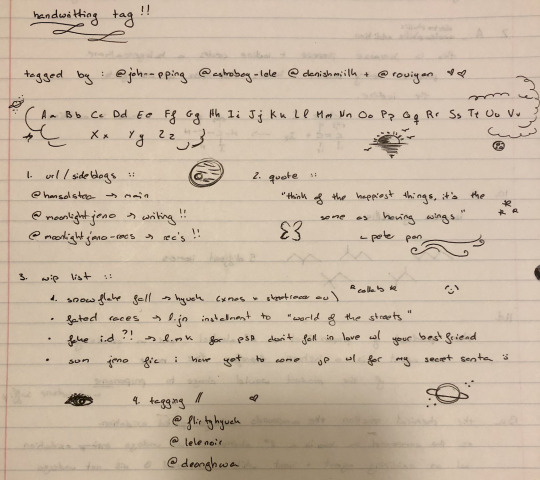 handwritting tag !!
tagged by : @joh--pping @astroboy-lele @danishmiilk + @rouiyan
Aa Bb Cc Dd Ee Ff Gg Hh Ii Jj Kk Ll Mm Nn Oo Pp Qq Rr Ss Tt Uu Vv
Xx Yy Zz
1. url / sideblogs ::
@hansolstea → main
@moonlightjeno → writing !!
@moonlightjeno-recs → rec's !!
2. quote ::
"think of the happiest things, it's the
same as having wings"
peter pan
3. wip list ::
snowflake fall → hyuck (xmas x streetrace au) * collab *
• fated races → l.jn instalment to "world of the streets"
• fake i.d ?! → l.mk for PSA don't fall in love w/ your best friend
• sum jeno fic i have yet to come up w/ for my secret santa :)
4. tagging //
@flirtyhyuck
@lelenoir
@deonghwa